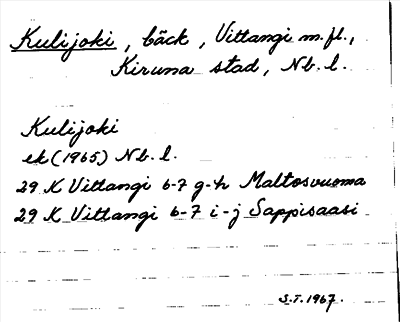 Kulijoki, bäck, Vittangi m.fl.,
Kiruna stad, Nb. l.
Kulijoki
ek (1965) Nb. l.
29 K Vittangi 6-7 g-h Maltosvuoma
29 K Vittangi 6-7 i-j Sappisaasi
S.T. 1967.